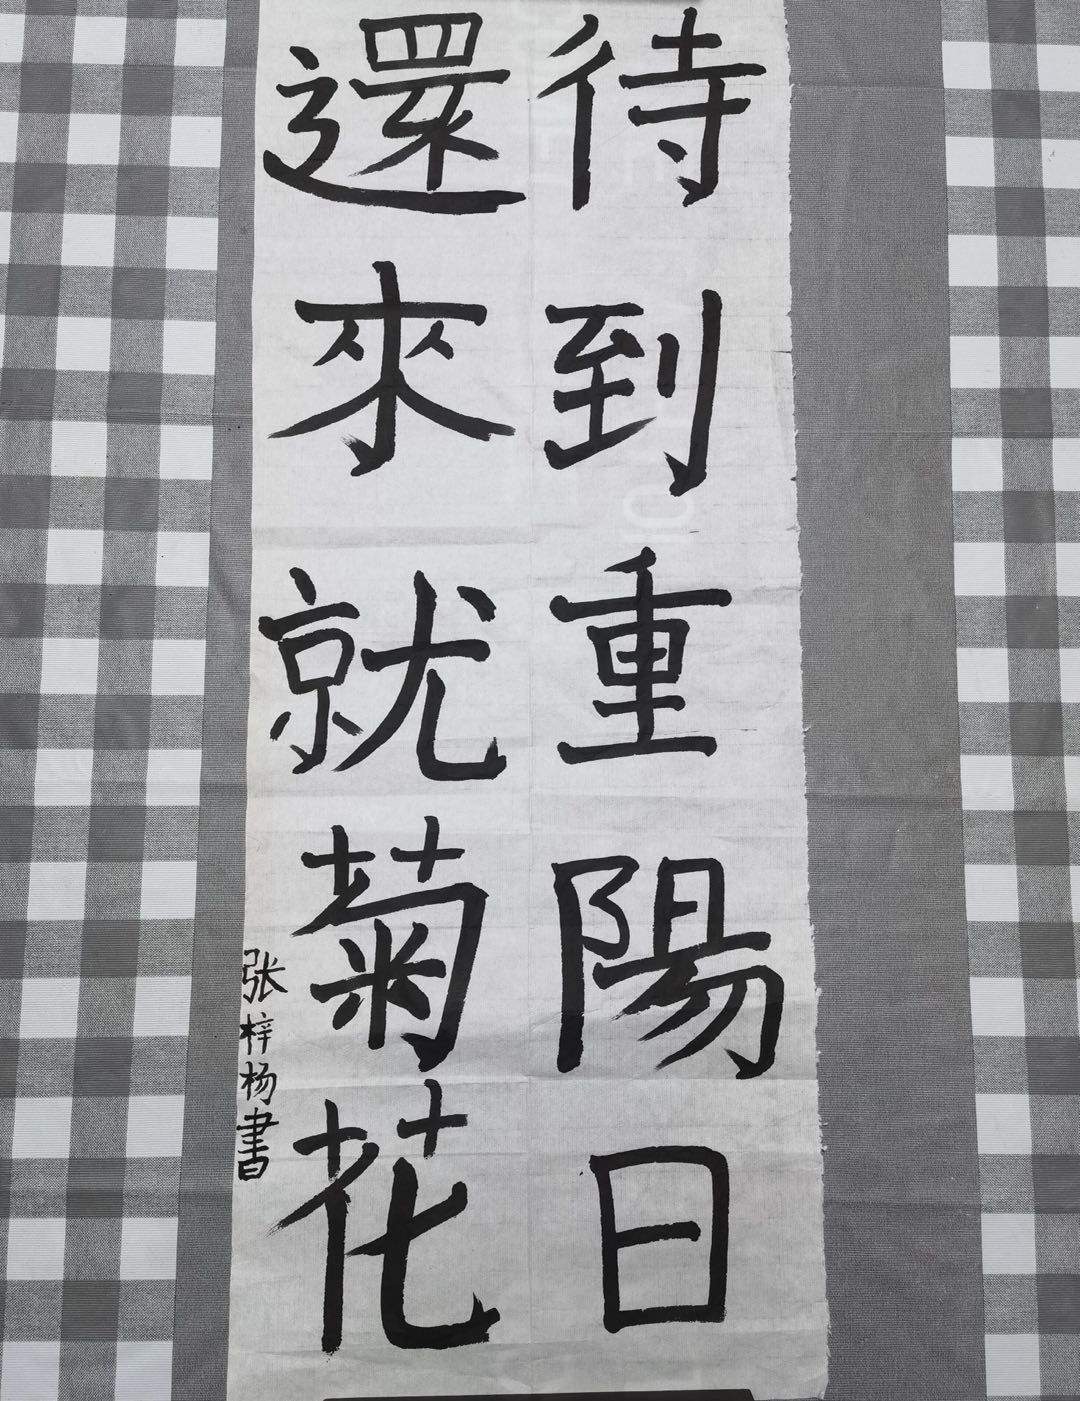 待到重陽日
還來就菊花
张梓杨書